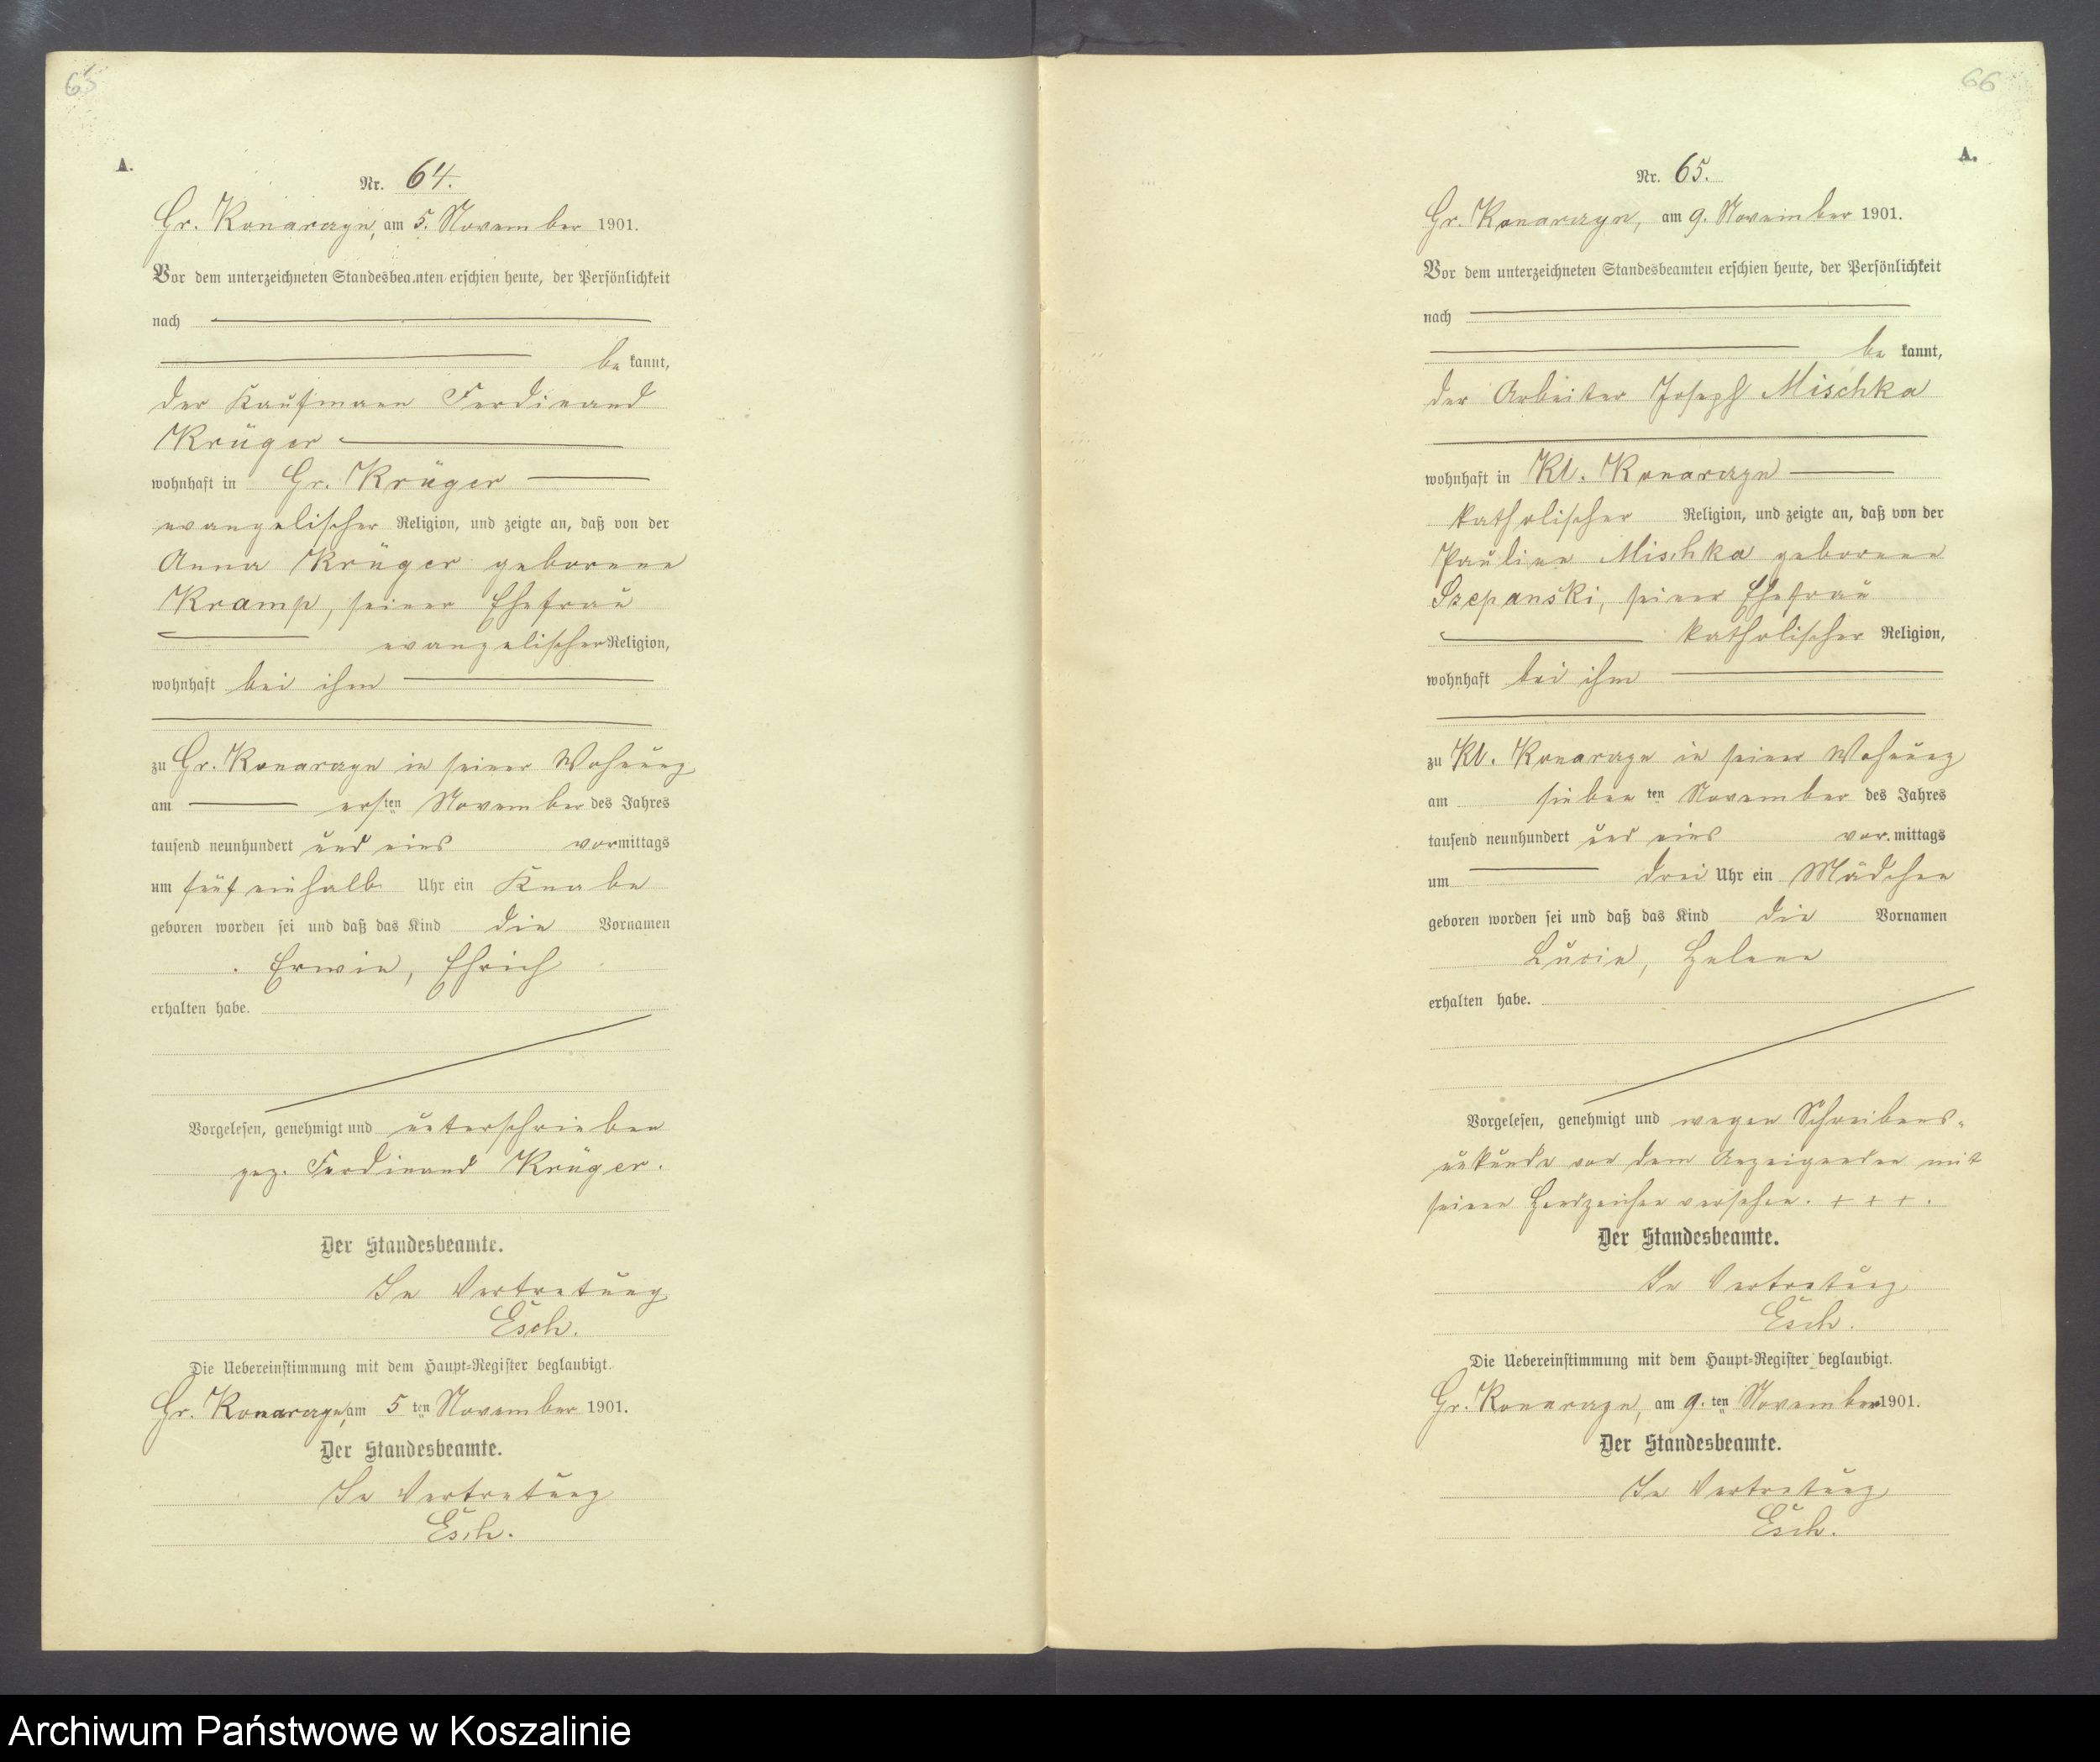 65
A.
Nr. 64.
Gr. Konarczyn, am 5. November 1901.
Vor dem unterzeichneten Standesbeamten erschien heute, der Persönlichkeit
nach
be kannt,
der Kaufmann Ferdinand
Krüger
wohnhaft in Gr. Krüger
evangelischer Religion, und zeigte an, daß von der
Anna Krüger geborene
Kramp, seiner Ehefrau
evangelischer Religion,
wohnhaft bei ihm
zu Gr. Konarczyn in seiner Wohnung
am ersten November des Jahres
tausend neunhundert und eins vormittags
um fünf einhalb Uhr ein Knabe
geboren worden sei und daß das Kind die Vornamen
Erwin, Ehrich
erhalten habe.
Vorgelesen, genehmigt und unterschrieben
gez. Ferdinand Krüger.
Der Standesbeamte.
In Vertretung
Esch.
Die Uebereinstimmung mit dem Haupt-Register beglaubigt.
Gr. Konarczyn, am 5 ten November 1901.
Der Standesbeamte.
In Vertretung
Esch.
66
A.
Nr. 65.
Gr. Konarczyn, am 9. November 1901.
Vor dem unterzeichneten Standesbeamten erschien heute, der Persönlichkeit
nach
be kannt,
der Arbeiter Joseph Mischka
wohnhaft in Kl. Konarczyn
katholischer Religion, und zeigte an, daß von der
Pauline Mischka geborene
Szepanski, seiner Ehefrau
katholischer Religion,
wohnhaft bei ihm
zu Kl. Konarczyn in seiner Wohnung
am sieben ten November des Jahres
tausend neunhundert und eins vor. mittags
um drei Uhr ein Mädchen
geboren worden sei und daß das Kind die Vornamen
Lucie, Helene
erhalten habe.
Vorgelesen, genehmigt und wegen Schreibens-
unkunde von dem Anzeigenden mit
seinen Handzeichen versehen. + + + .
Der Standesbeamte.
In Vertretung
Esch.
Die Uebereinstimmung mit dem Haupt-Register beglaubigt.
Gr. Konarczyn, am 9. ten November 1901.
Der Standesbeamte.
In Vertretung
Esch.
Archiwum Państwowe w Koszalinie